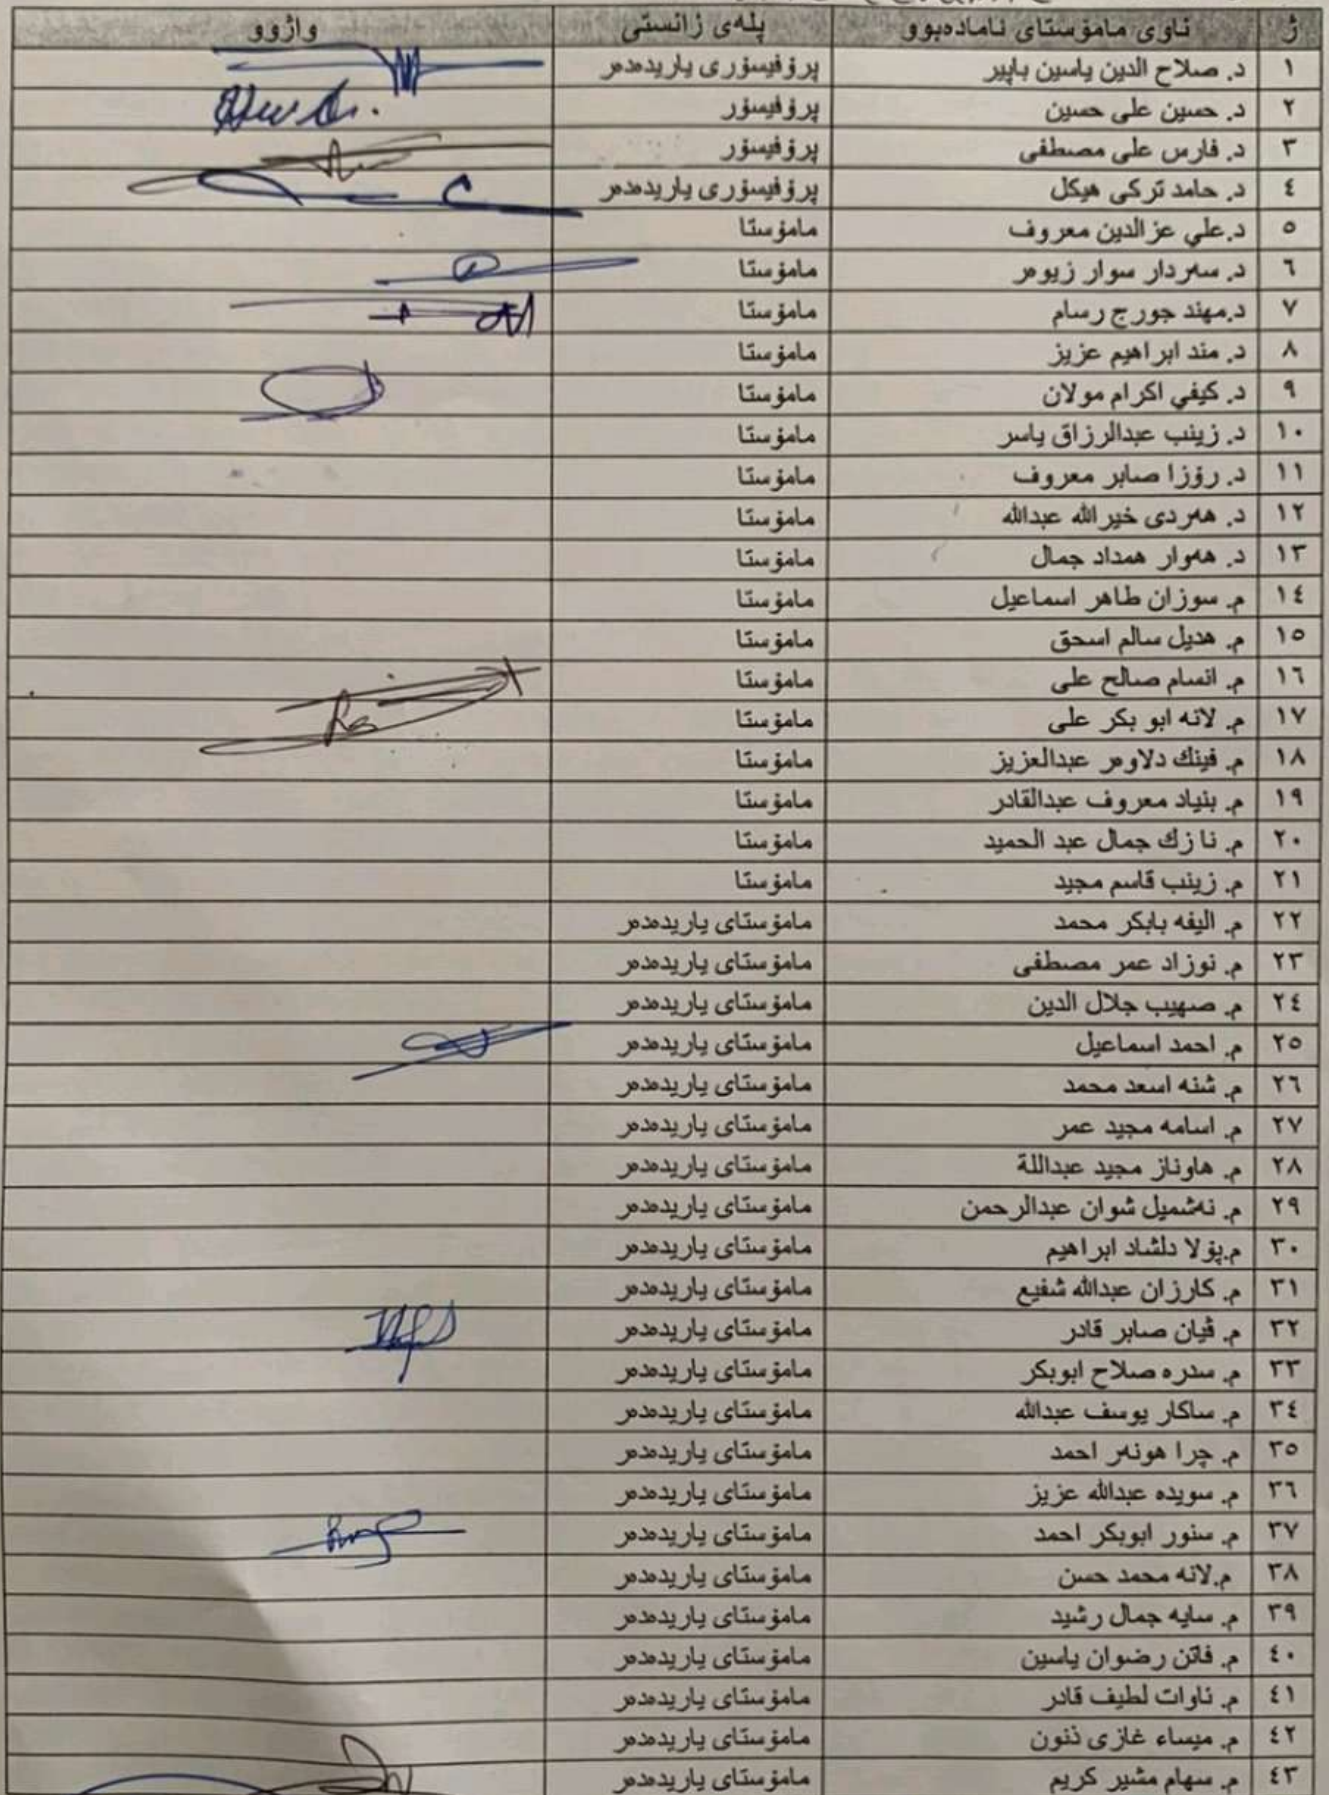 ژ ناوی مامۆستای ئامادەبوو پلەی زانستی واژوو
١ د. صلاح الدين ياسين باپير پرۆفیسۆری یاریدەدەر
٢ د. حسين على حسين پرۆفیسۆر
٣ د. فارس على مصطفى پرۆفیسۆر
٤ د. حامد تركى هيكل پرۆفیسۆری یاریدەدەر
٥ د.علي عز الدين معروف مامۆستا
٦ د. سەردار سوار زیوەر مامۆستا
٧ د.مهند جورج رسام مامۆستا
٨ د. مند ابراهيم عزيز مامۆستا
٩ د. كيفي اكرام مولان مامۆستا
١٠ د. زينب عبدالرزاق ياسر مامۆستا
١١ د. رۆزا صابر معروف مامۆستا
١٢ د. هەردی خيرالله عبدالله مامۆستا
١٣ د. هەوار همداد جمال مامۆستا
١٤ م. سوزان طاهر اسماعيل مامۆستا
١٥ م. هديل سالم اسحق مامۆستا
١٦ م. انسام صالح على مامۆستا
١٧ م. لانه ابو بكر على مامۆستا
١٨ م. فينك دلاوەر عبدالعزيز مامۆستا
١٩ م. بنياد معروف عبدالقادر مامۆستا
٢٠ م. نا زك جمال عبد الحميد مامۆستا
٢١ م. زينب قاسم مجيد مامۆستا
٢٢ م. اليفه بابكر محمد مامۆستای یاریدەدەر
٢٣ م. نوزاد عمر مصطفى مامۆستای یاریدەدەر
٢٤ م. صهيب جلال الدين مامۆستای یاریدەدەر
٢٥ م. احمد اسماعيل مامۆستای یاریدەدەر
٢٦ م. شنه اسعد محمد مامۆستای یاریدەدەر
٢٧ م. اسامه مجيد عمر مامۆستای یاریدەدەر
٢٨ م. هاوناز مجيد عبداللة مامۆستای یاریدەدەر
٢٩ م. نەشمیل شوان عبدالرحمن مامۆستای یاریدەدەر
٣٠ م.پۆلا دلشاد ابراهيم مامۆستای یاریدەدەر
٣١ م. كارزان عبدالله شفيع مامۆستای یاریدەدەر
٣٢ م. ڤيان صابر قادر مامۆستای یاریدەدەر
٣٣ م. سدره صلاح ابوبكر مامۆستای یاریدەدەر
٣٤ م. ساكار يوسف عبدالله مامۆستای یاریدەدەر
٣٥ م. چرا هونەر احمد مامۆستای یاریدەدەر
٣٦ م. سويده عبدالله عزيز مامۆستای یاریدەدەر
٣٧ م. سنور ابوبكر احمد مامۆستای یاریدەدەر
٣٨ م.لانه محمد حسن مامۆستای یاریدەدەر
٣٩ م. سايه جمال رشيد مامۆستای یاریدەدەر
٤٠ م. فاتن رضوان ياسين مامۆستای یاریدەدەر
٤١ م. ئاوات لطيف قادر مامۆستای یاریدەدەر
٤٢ م. ميساء غازى ذنون مامۆستای یاریدەدەر
٤٣ م. سهام مشير كريم مامۆستای یاریدەدەر